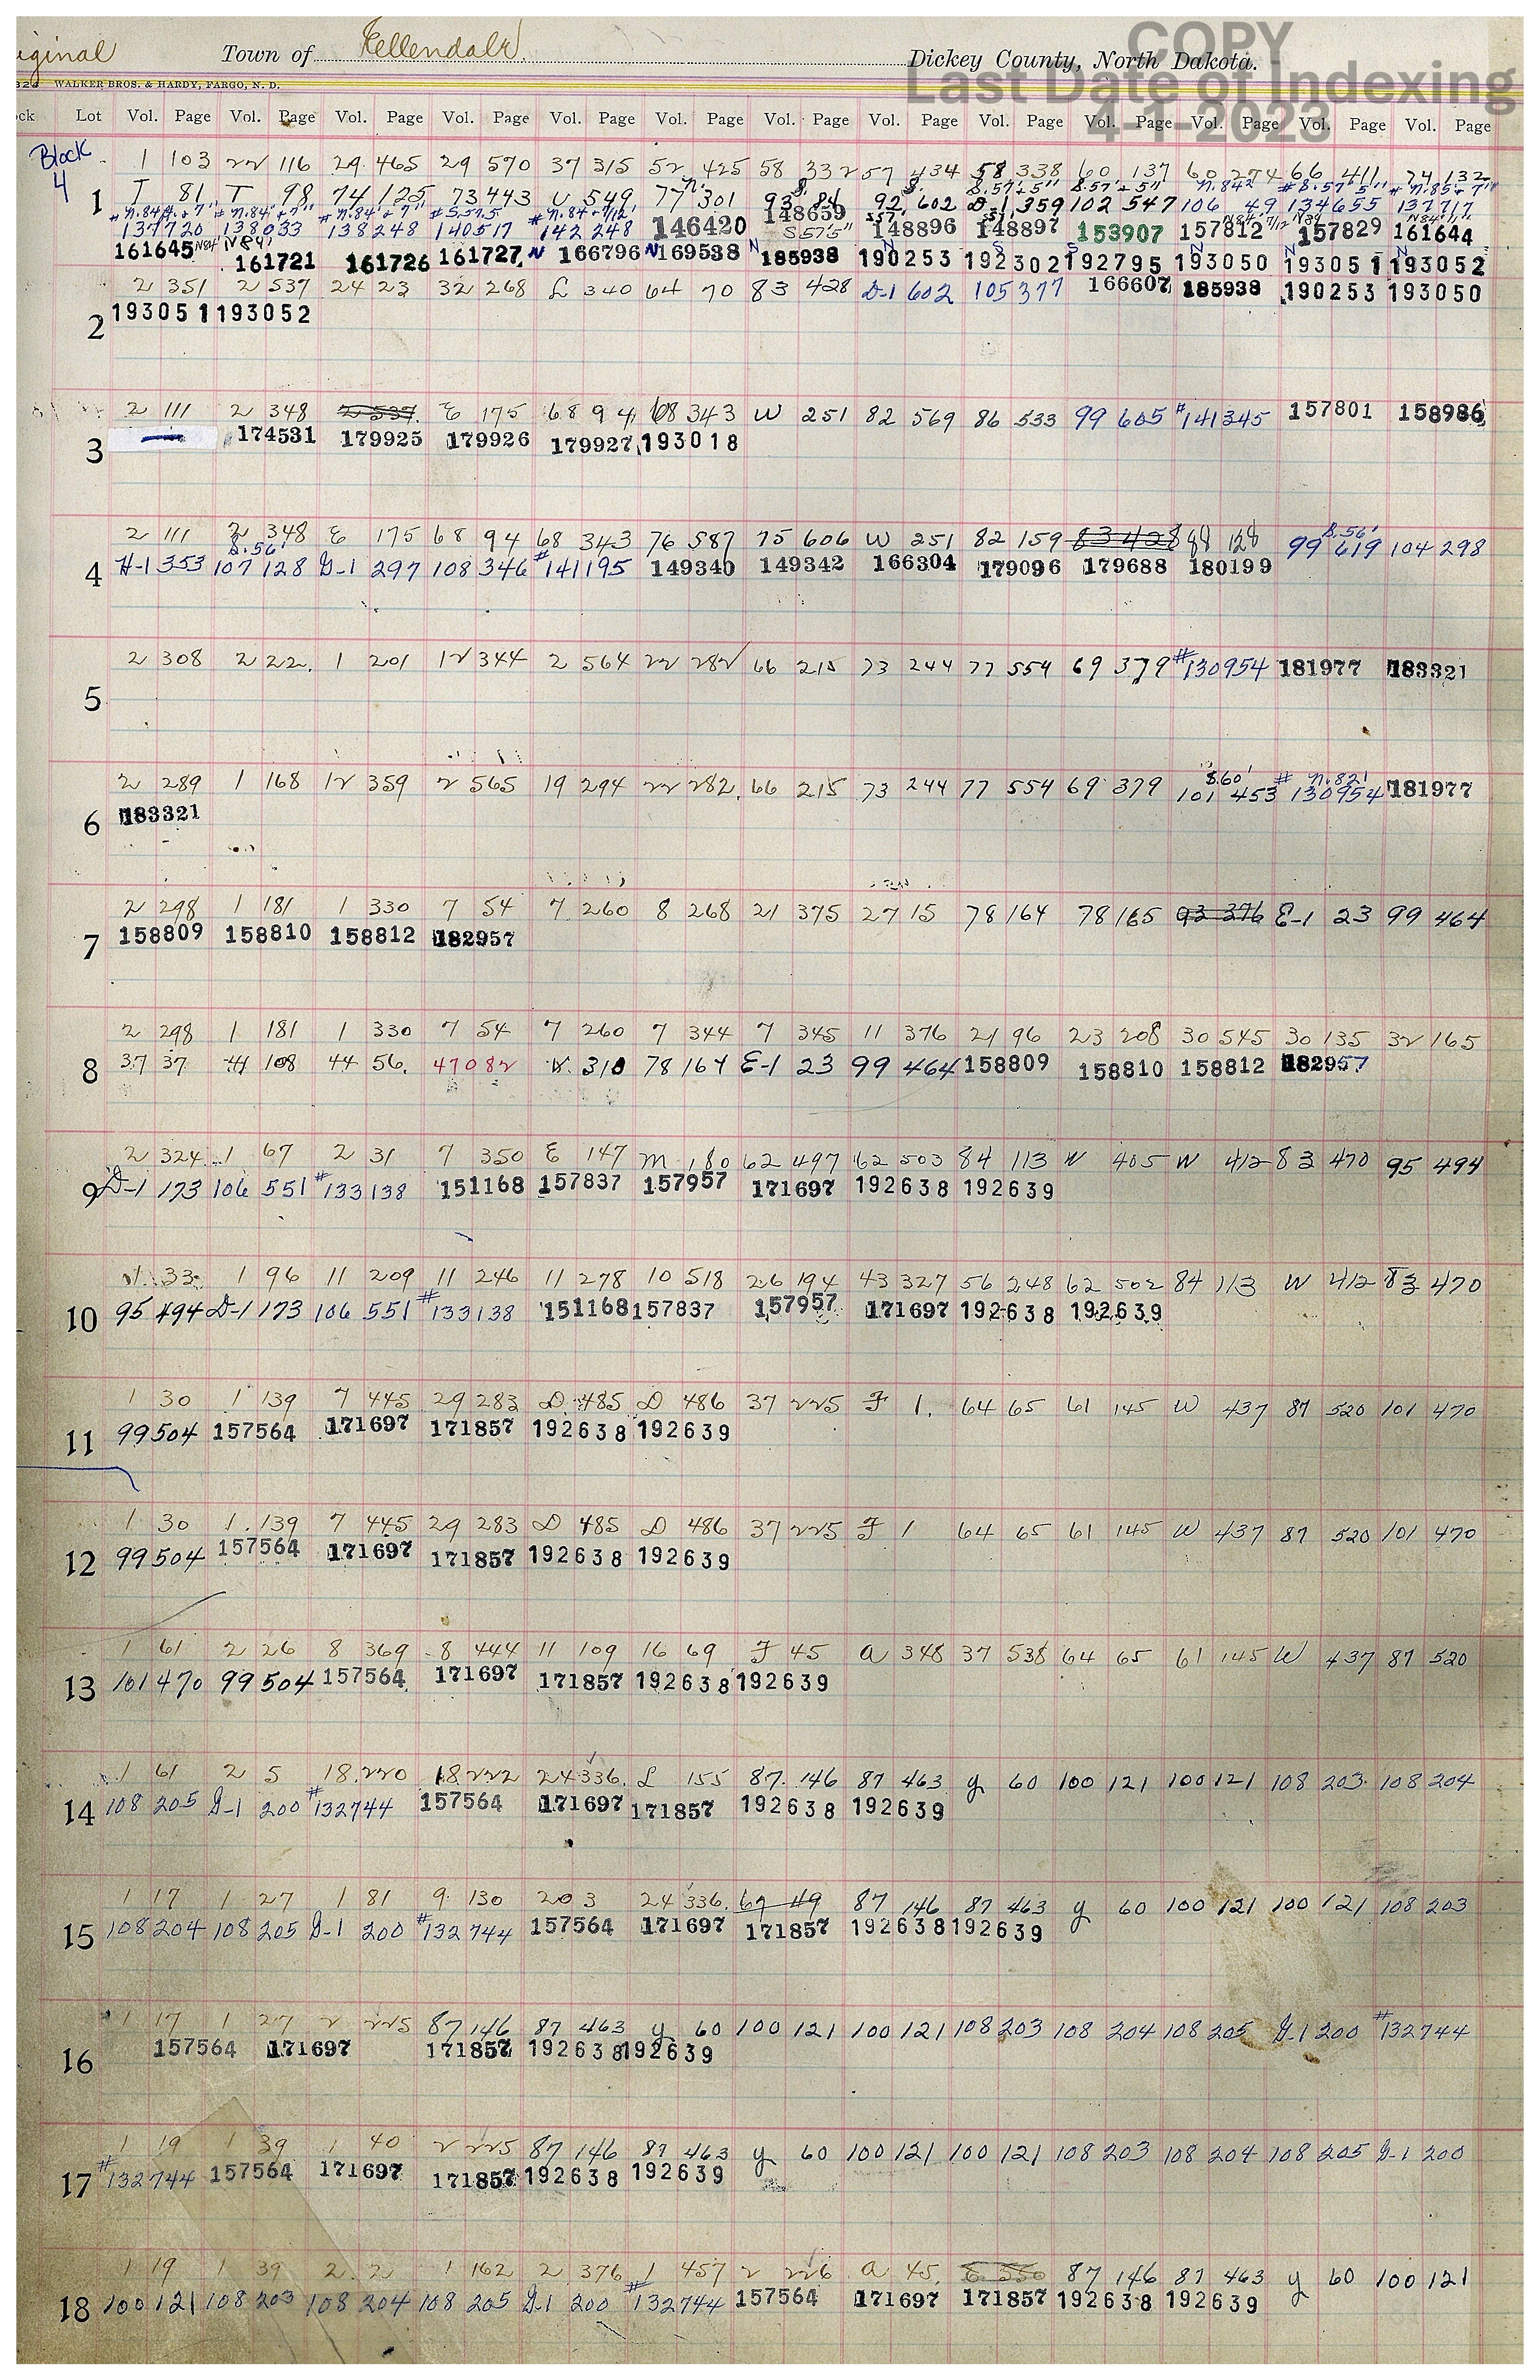 iginal Town of Ellendale Dickey County, North Dakota.
COPY
Last Date of Indexing
4-1-2023
WALKER BROS. & HARDY, FARGO, N. D.
ock Lot Vol. Page Vol. Page Vol. Page Vol. Page Vol. Page Vol. Page Vol. Page Vol. Page Vol. Page Vol. Page Vol. Page Vol. Page Vol. Page
Block
4
1 103 22 116 29 465 29 570 37 315 52 425 58 332 57 434 58 338 60 137 60 274 66 411 74 132
1 T 81 T 98 74 125 73 443 U 549 77 301 93 84 92 602 D-1 359 102 547 106 49 134655 137717
137720 138033 138248 140517 142248 146420 148659 148896 148897 153907 157812 157829 161644
161645 161721 161726 161727 N 166796 N 169538 N 185938 190253 192302 192795 193050 193051 193052
2 351 2 537 24 23 32 268 L 340 64 70 83 428 D-1 602 105 377 166607 185938 190253 193050
2 193051 193052
2 111 2 348 2 537 E 175 68 94 68 343 W 251 82 569 86 533 99 605 #141345 157801 158986
3 174531 179925 179926 179927 193018
2 111 2 348 E 175 68 94 68 343 76 587 75 606 W 251 82 159 83 428 88 128 99 619 104 298
4 H-1 353 107 128 G-1 297 108 346 #141195 149340 149342 166304 179096 179688 180199
2 308 2 22 1 201 12 344 2 564 22 282 66 215 73 244 77 554 69 379 #130954 181977 183321
5
2 289 1 168 12 359 2 565 19 294 22 282 66 215 73 244 77 554 69 379 101 453 #130954 181977
6 183321
2 298 1 181 1 330 7 54 7 260 8 268 21 375 27 15 78 164 78 165 93 376 E-1 23 99 464
7 158809 158810 158812 182957
2 298 1 181 1 330 7 54 7 260 7 344 7 345 11 376 21 96 23 208 30 545 30 135 32 165
8 37 37 44 108 44 56 47 082 310 78 164 E-1 23 99 464 158809 158810 158812 182957
2 324 1 67 2 31 7 350 E 147 M 180 62 497 62 503 84 113 W 405 W 412 83 470 95 494
9 D-1 173 106 551 #133138 151168 157837 157957 171697 192638 192639
33 1 96 11 209 11 246 11 278 10 518 26 194 43 327 56 248 62 502 84 113 W 412 83 470
10 95 494 D-1 173 106 551 #133138 151168 157837 157957 171697 192638 192639
1 30 1 139 7 445 29 283 D 485 D 486 37 225 F 1 64 65 61 145 W 437 87 520 101 470
11 99 504 157564 171697 171857 192638 192639
1 30 1 139 7 445 29 283 D 485 D 486 37 225 F 1 64 65 61 145 W 437 87 520 101 470
12 99 504 157564 171697 171857 192638 192639
1 61 2 26 8 369 8 444 11 109 16 69 F 45 A 348 37 538 64 65 61 145 W 437 87 520
13 101 470 99 504 157564 171697 171857 192638 192639
1 61 2 5 18 220 18 222 24 336 L 155 87 146 87 463 Y 60 100 121 100 121 108 203 108 204
14 108 205 G-1 200 #132744 157564 171697 171857 192638 192639
1 17 1 27 1 81 9 130 20 3 24 336 67 49 87 146 87 463 Y 60 100 121 100 121 108 203
15 108 204 108 205 G-1 200 #132744 157564 171697 171857 192638 192639
1 17 1 27 2 225 87 146 87 463 Y 60 100 121 100 121 108 203 108 204 108 205 G-1 200 #132744
16 157564 171697 171857 192638 192639
1 19 1 39 1 40 2 225 87 146 87 463 Y 60 100 121 100 121 108 203 108 204 108 205 G-1 200
17 #132744 157564 171697 171857 192638 192639
1 19 1 39 2 2 1 162 2 376 1 457 2 226 A 45 87 146 87 463 Y 60 100 121
18 100 121 108 203 108 204 108 205 G-1 200 #132744 157564 171697 171857 192638 192639